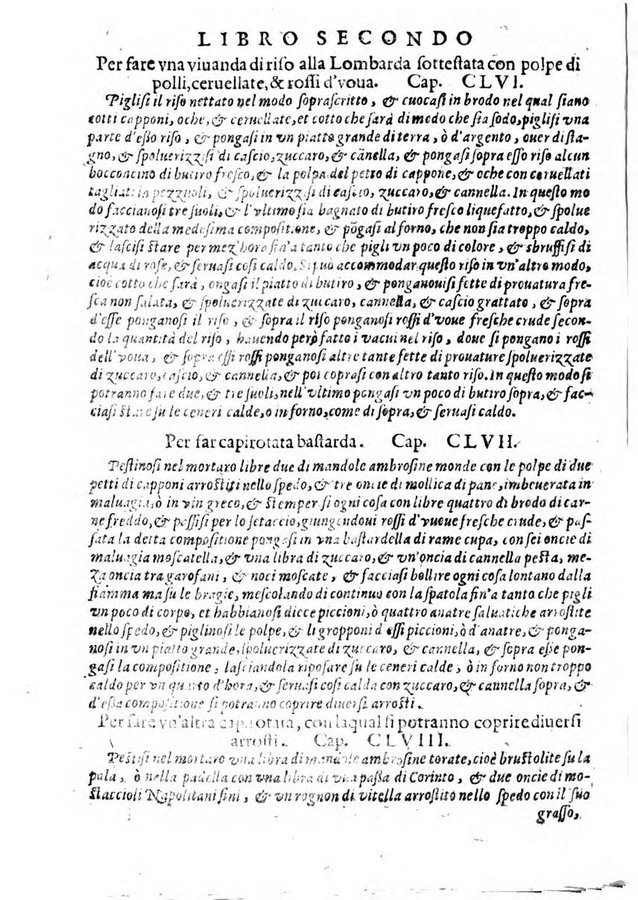 LIBRO SECONDO
Per fare vna viuanda di riso alla Lombarda sottestata con polpe di
polli, ceruellate, & rossi d'voua. Cap. CLVI.
Piglisi il riso nettato nel modo soprascritto, & cuocasi in brodo nel qual siano
cotti capponi, oche, & ceruellate, et cotto che sarà di medo che sia sodo, piglisi vna
parte d'esso riso, & pongasi in vn piatto grande di terra, ò d'argento, ouer di sta-
gno, & spoluerizzisi di cascio, zuccaro, & cãnella, & pongasi sopra esso riso alcun
bocconcino di butiro fresco, & la polpa del petto di cappone, & oche con ceruellati
tagliati in pezzuoli, & spoluerizzisi di cascio, zuccaro, & cannella. In questo mo
do faccianosi tre suoli, & l'vltimo sia bagnato di butiro fresco liquefatto, & spolue
rizzato della medesima compositione, & põgasi al forno, che non sia troppo caldo,
& lascisi stare per mez'hora fin'a tanto che pigli vn poco di colore, & sbruffisi di
acqua di rose, & seruasi cosi caldo. Si può accommodar questo riso in vn'altro modo,
cioè cotto che sarà, ongasi il piatto di butiro, & ponganouisi fette di prouatura fre-
sca non salata, & spoluerizzate di zuccaro, cannella, & cascio grattato, & sopra
d'esse ponganosi il riso, & sopra il riso ponganosi rossi d'voue fresche crude secon-
do la quantità del riso, hauendo però fatto i vacui nel riso, doue si pongano i rossi
dell'voua, & sopra essi rossi ponganosi altre tante fette di prouature spoluerizzate
di zuccaro, cascio, & cannella, & poi coprasi con altro tanto riso. In questo modo si
potranno fare due, & tre suoli, nell'vltimo pongasi vn poco di butiro sopra, & fac-
ciasi stare su le ceneri calde, o in forno, come di sopra, & seruasi caldo.
Per far capirotata bastarda. Cap. CLVII.
Pestinosi nel mortaro libre due di mandole ambrosine monde con le polpe di due
petti di capponi arrostiti nello spedo, & tre oncie di mollica di pane, imbeuerata in
maluagia, ò in vin greco, & stemperisi ogni cosa con libre quattro di brodo di car-
ne freddo, & passisi per lo setaccio, giungendoui rossi d'vueue fresche crude, & pas-
sata la detta compositione pongasi in vna bastardella di rame cupa, con sei oncie di
maluagia moscatella, & vna libra di zuccaro, & vn'oncia di cannella pesta, me-
za oncia tra garofani, & noci moscate, & facciasi bollire ogni cosa lontano dalla
fiamma ma su le bragie, mescolando di continuo con la spatola fin'a tanto che pigli
vn poco di corpo, et habbianosi diece piccioni, ò quattro anatre saluatiche arrostite
nello spedo, & piglinosi le polpe, & li gropponi d'essi piccioni, ò d'anatre, & ponga-
nosi in vn piatto grande, spoluerizzate di zuccaro, & cannella, & sopra esse pon-
gasi la compositione, lasciandola riposare su le ceneri calde, ò in forno non troppo
caldo per vn quarto d'hora, & seruasi cosi calda con zuccaro, & cannella sopra, &
d'essa compositione si potranno coprire diuersi arrosti.
Per fare vn'altra capirotata, con laqual si potranno coprire diuersi
arrosti. Cap. CLVIII.
Pestisi nel mortaro vna libra di mandole ambrosine torate, cioè brustolite su la
pala, ò nella padella con vna libra di vua passa di Corinto, & due oncie di mo-
staccioli Napolitani fini, & vn rognon di vitella arrostito nello spedo con il suo
grasso,